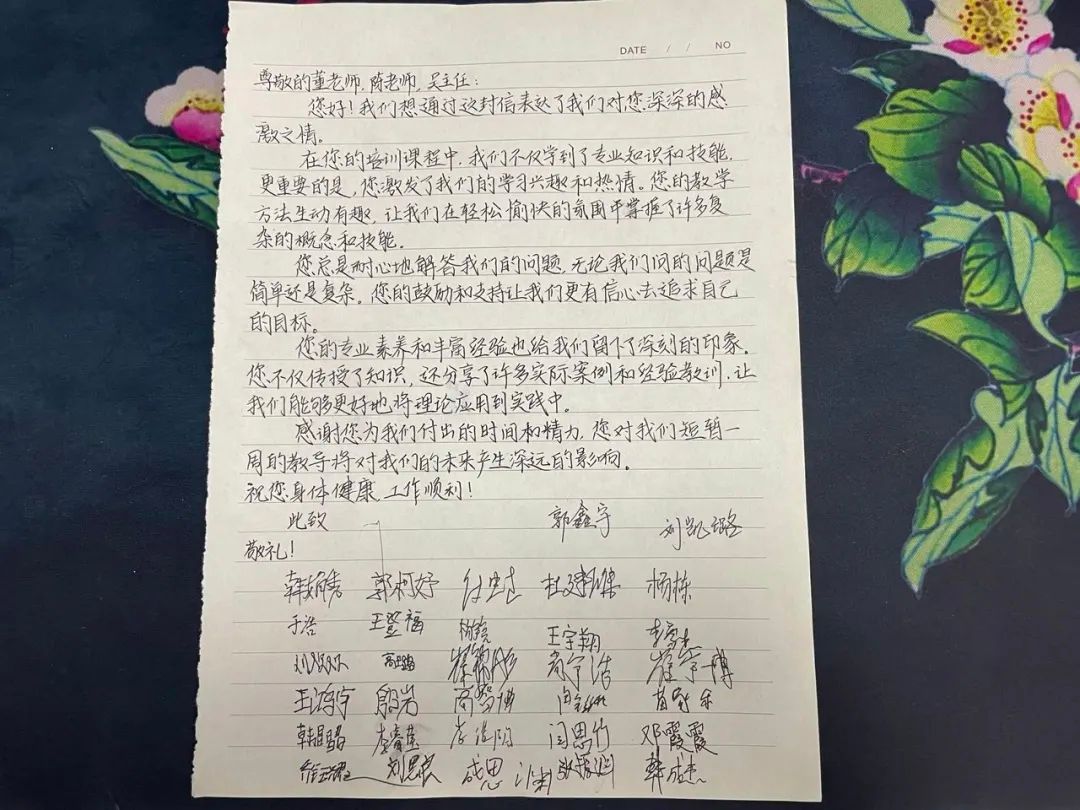 DATE / / NO
尊敬的董老师,陈老师,吴主任:
您好!我们想通过这封信表达了我们对您深深的感
激之情。
在您的培训课程中,我们不仅学到了专业知识和技能,
更重要的是,您激发了我们的学习兴趣和热情。您的教学
方法生动有趣,让我们在轻松愉快的氛围中掌握了许多复
杂的概念和技能。
您总是耐心地解答我们的问题,无论我们问的问题是
简单还是复杂。您的鼓励和支持让我们更有信心去追求自己
的目标。
您的专业素养和丰富经验也给我们留下了深刻的印象。
您不仅传授了知识,还分享了许多实际案例和经验教训,让
我们能够更好地将理论应用到实践中。
感谢您为我们付出的时间和精力,您对我们短暂一
周的教导将对我们的未来产生深远的影响。
祝您身体健康,工作顺利!
此致 郭鑫宇 刘凯璐
敬礼!
郭柯妤 杨栋
于浩 王登福 王宇翔
尚宇浩 崔宇博
殷岩
闫思竹 邓霞霞
成思